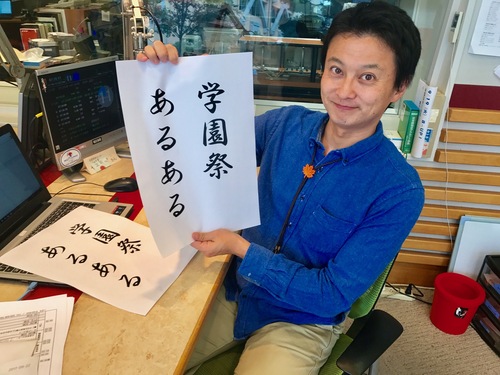 学園祭
あるある
学園祭
あるある